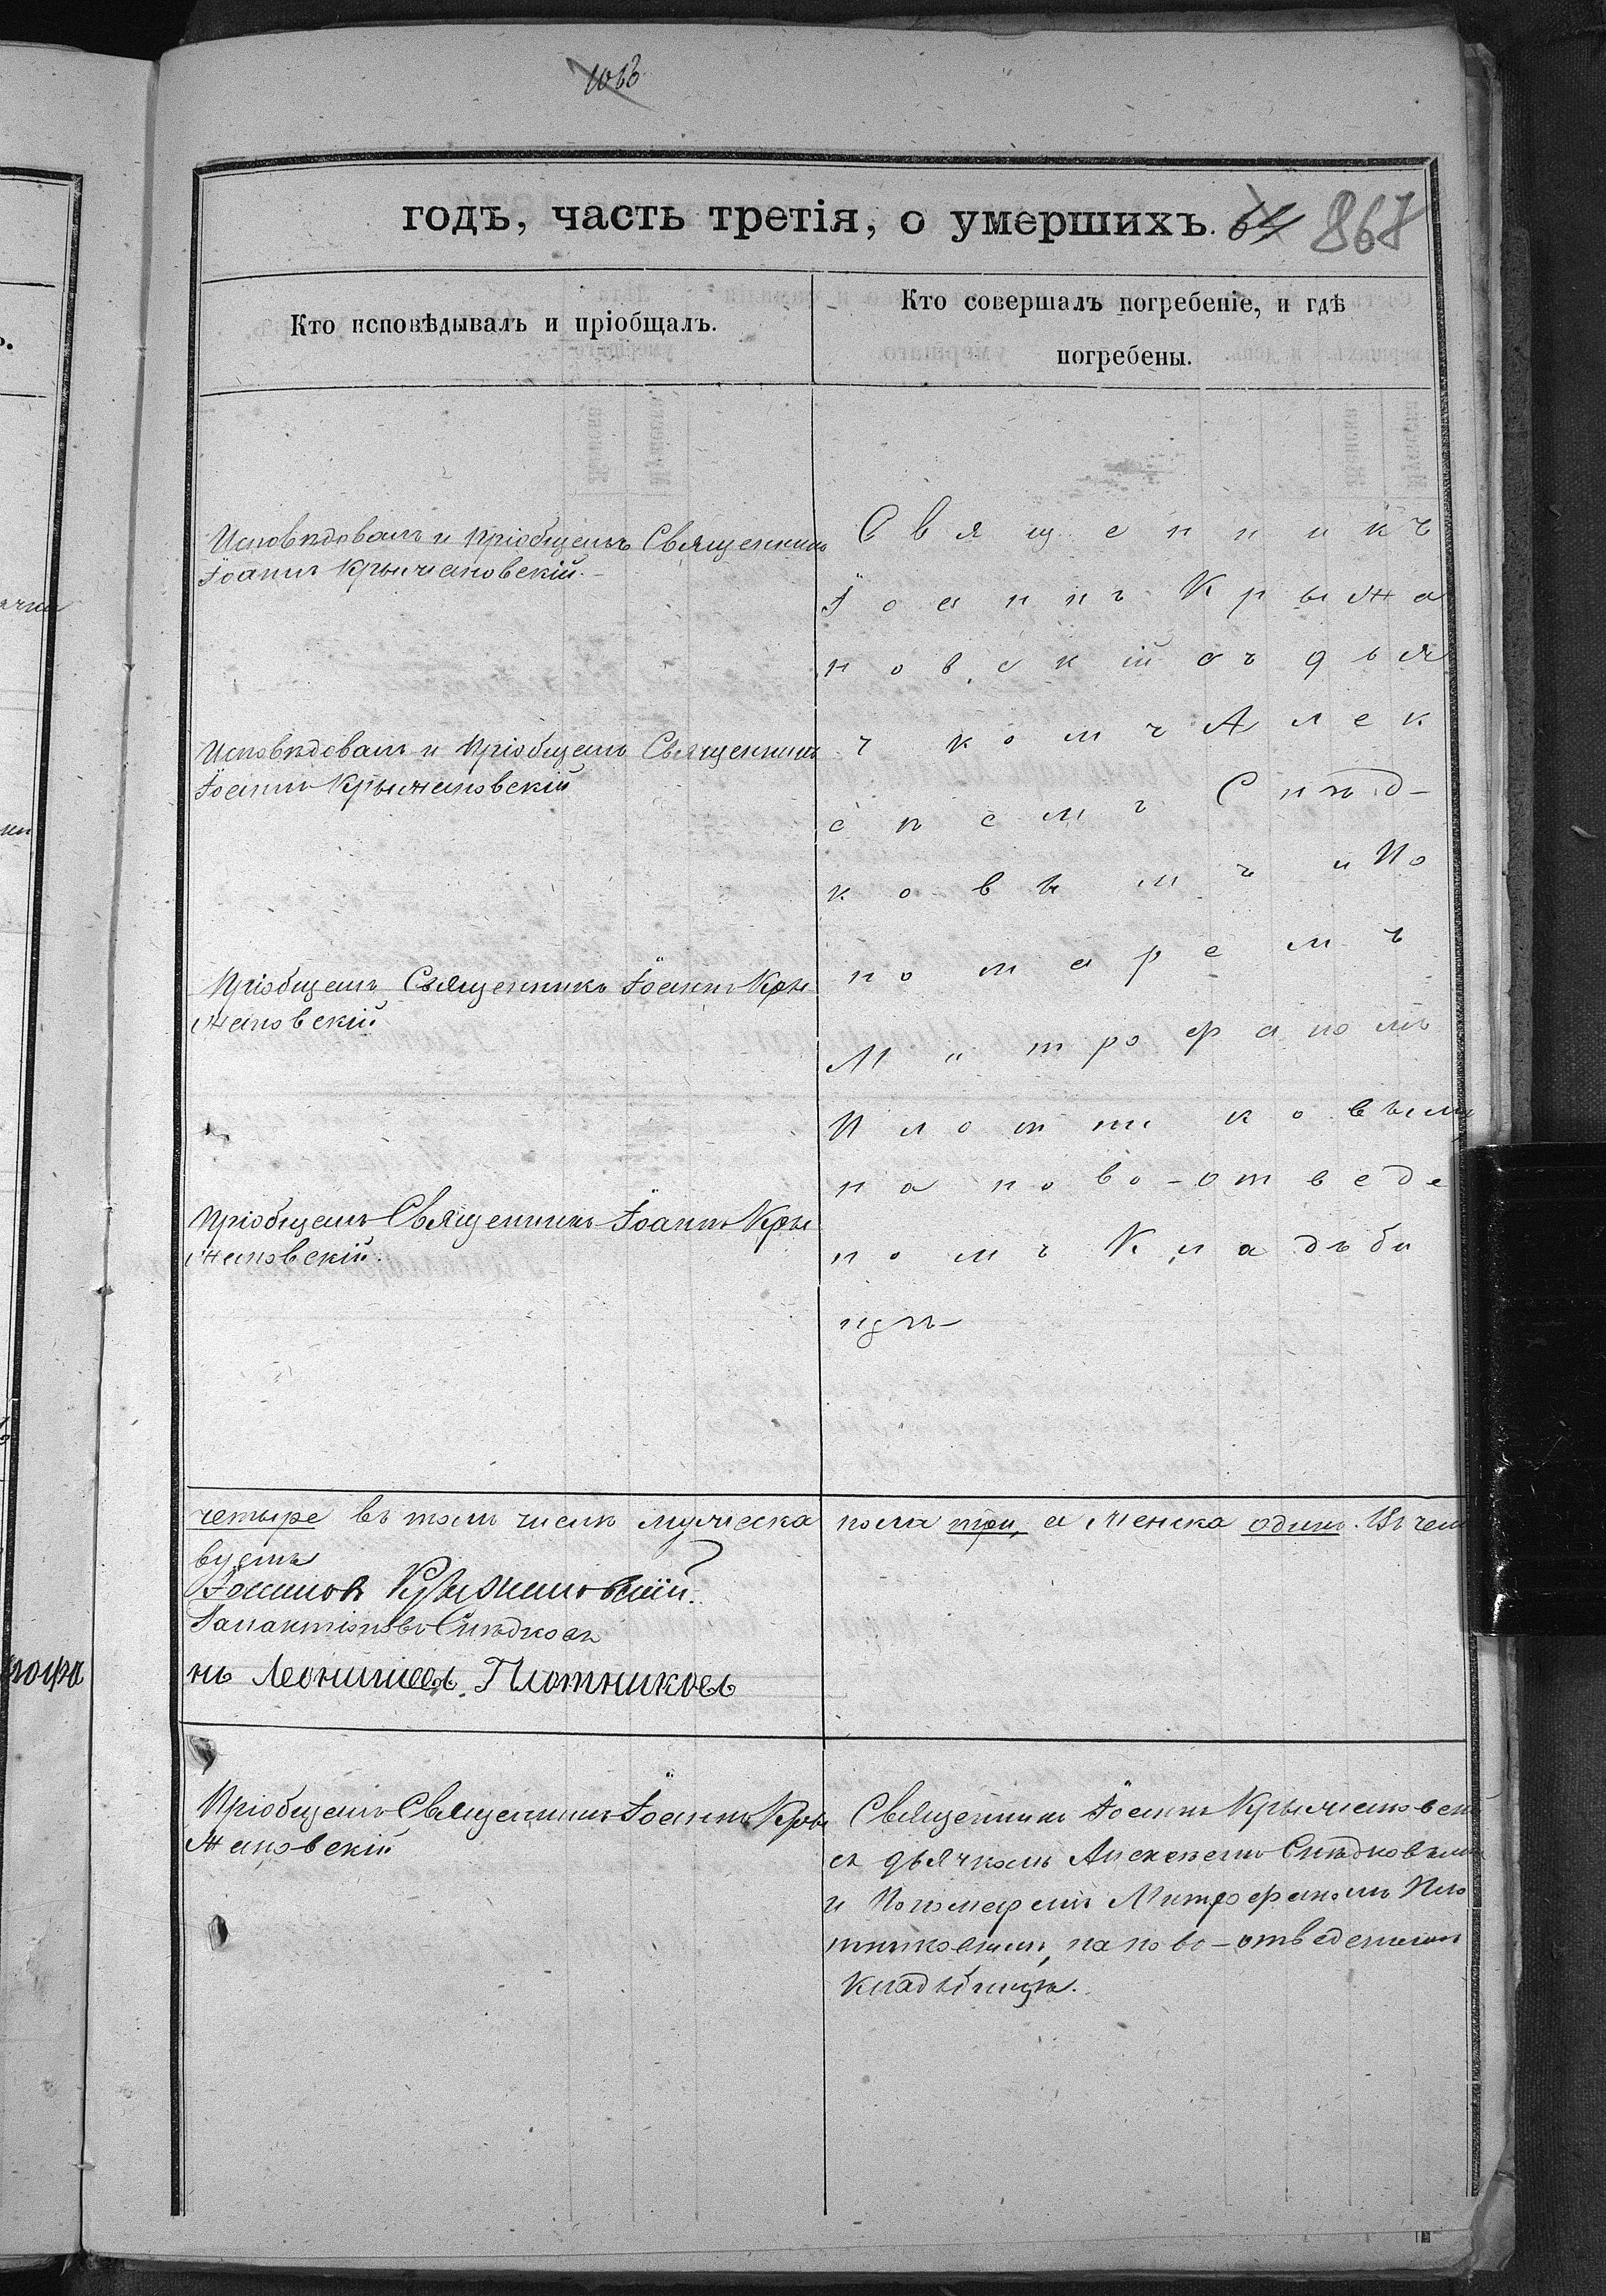 годъ, часть третія, о умершихъ. 868
Кто исповѣдывалъ и пріобщалъ.
Кто совершалъ погребеніе, и гдѣ
погребены.
Исповѣдовалъ и пріобщалъ Священникъ
Іоаннъ Крыжановскій.
Исповѣдовалъ и пріобщалъ Священникъ
Іоаннъ Крыжановскій
Пріобщалъ Священникъ Іоаннъ Кры
жановскій
Пріобщалъ Священникъ Іоаннъ Кры
жановскій.
Священникъ
Іоаннъ Крыжа
новскій съ дья
чкомъ Алек
сѣемъ Снѣд-
ковымъ и По
номаремъ
Митрофаномъ
Плотниковымъ
на ново-отведе
номъ Кладъби
щѣ
четыре въ томъ числѣ мужеска пола три, а женска одинъ. Въ чемъ
Іоанновъ Крыжановскій.
Галактіоновъ Снѣдковъ
нъ Леонтіевъ Плотниковъ
Пріобщалъ Священникъ Іоаннъ Кры
жановскій
Священникъ Іоаннъ Крыжановскій
съ дьячкомъ Алексѣемъ Снѣдковымъ
и Пономаремъ Митрофаномъ Пло
тниковымъ, на ново-отведенномъ
Кладъбищѣ.